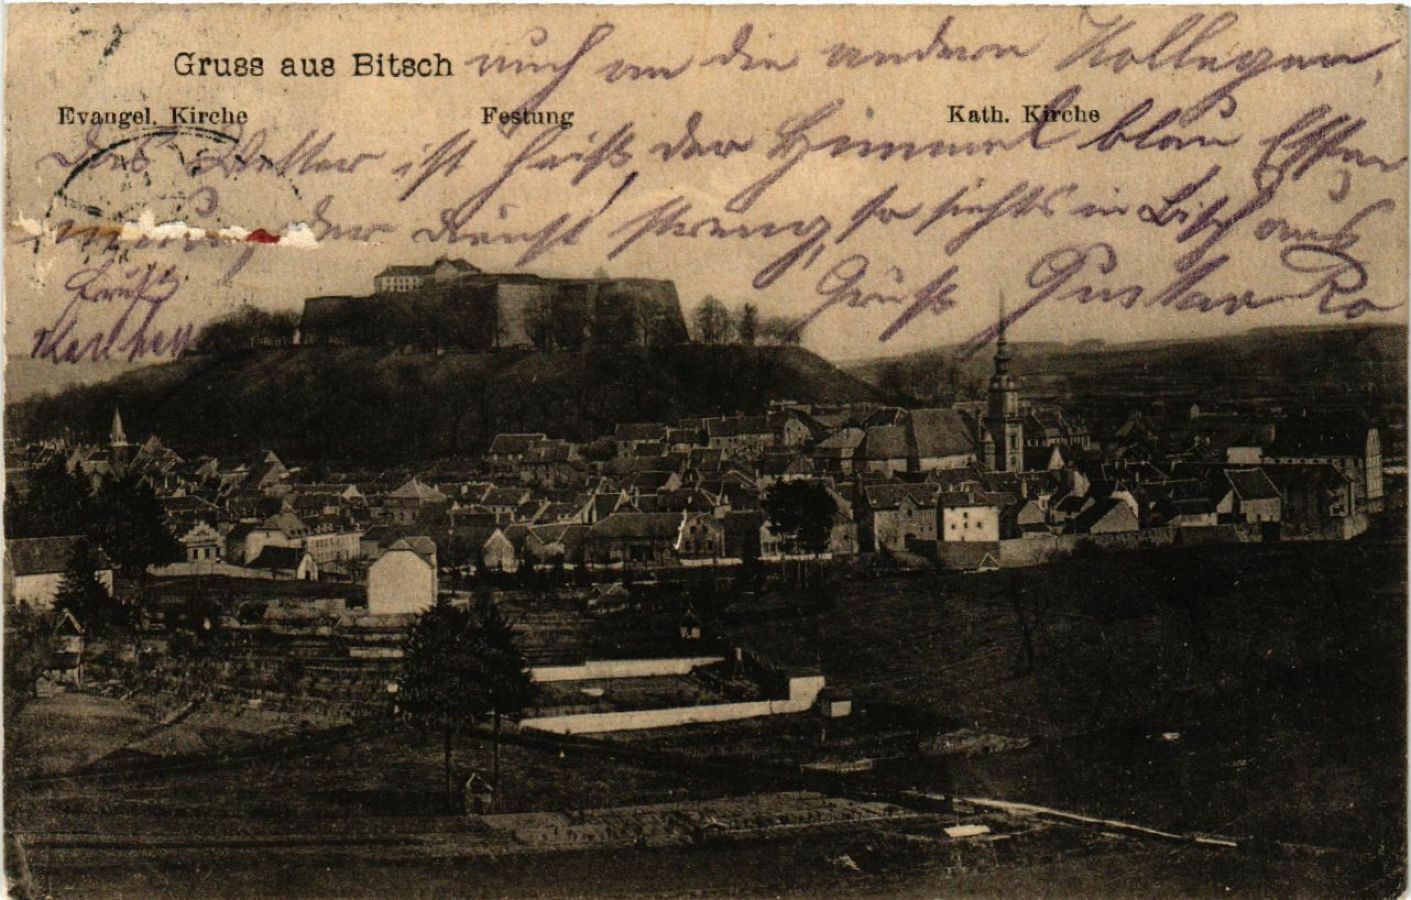 Gruss aus Bitsch
auch an die andern Kollegen,
Evangel. Kirche Festung Kath. Kirche
Das Wetter ist heiß der Himmel blau Essen
der Dienst streng, so siehts in Bitsch aus
Gruß Gustav